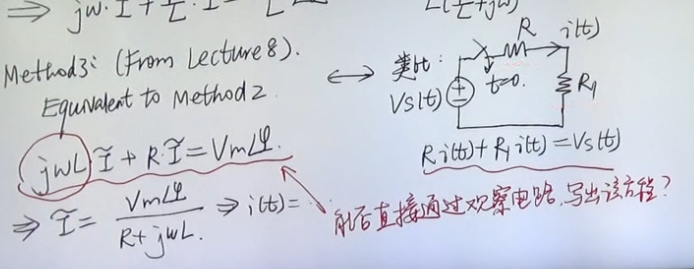 ⇒ jω·Ĩ + R/L·Ĩ =
L(R/L+jω)
Method3: (From Lecture8).
Equivalent to Method2
jωL Ĩ + R·Ĩ = Vm∠φ.
⇒ Ĩ = Vm∠φ / R+jωL. ⇒ i(t)=...
类比:
R
i(t)
Vs(t)
t=0.
R1
Ri(t)+R1i(t)=Vs(t)
能否直接通过观察电路,写出该方程?